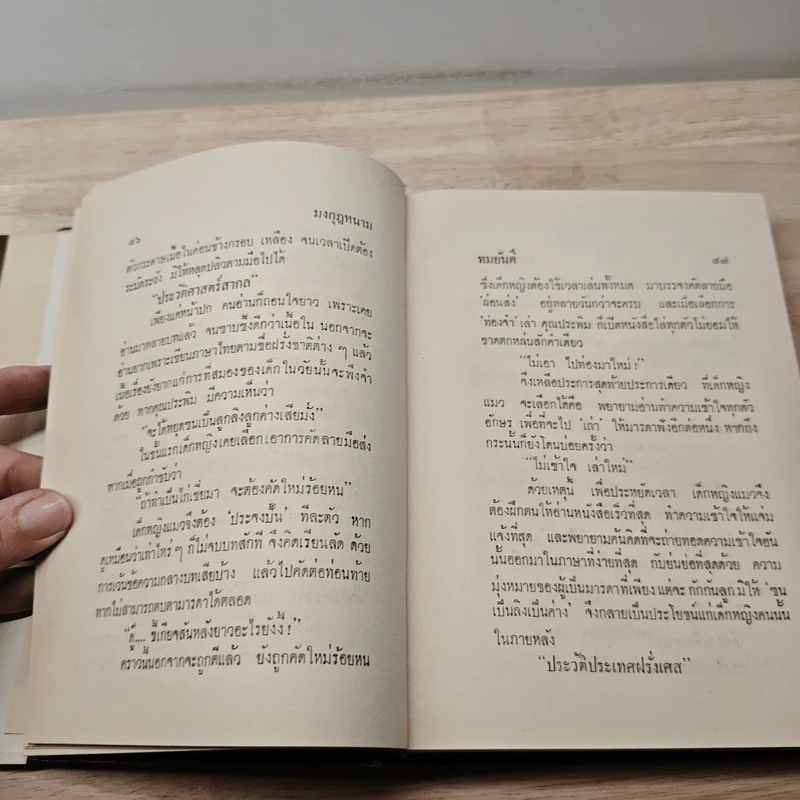 ๔๖
มงกุฎหนาม
ตัวกระดาษเนื้อในค่อนข้างกรอบ เหลือง จนเวลาเปิดต้อง
ระมัดระวัง มิให้หลุดปลิวตามมือไปได้
“ประวัติศาสตร์สากล”
เพียงแค่หน้าปก คนอ่านก็ถอนใจยาว เพราะเคย
อ่านมาหลายบทแล้ว จนซาบซึ้งดีกว่าเนื้อใน นอกจากจะ
อ่านยากเพราะเขียนภาษาไทยตามชื่อฝรั่งชาติต่าง ๆ แล้ว
เนื้อเรื่องยังยากแก่การที่สมองของเด็กในวัยนั้นจะพึงจำ
ด้วย หากคุณประพิม มีความเห็นว่า
“จะได้หยุดซนเป็นลูกลิงลูกค่างเสียมั่ง”
ในชั้นแรกเด็กหญิงเคยเลือกเอาการคัดลายมือส่ง
หากเมื่อถูกกำชับว่า
“ถ้าทำเป็นไก่เขี่ยมา จะต้องคัดใหม่ร้อยหน”
เด็กหญิงแมวจึงต้อง ‘ประจงปั้น’ ทีละตัว หาก
ดูเหมือนว่าเท่าไหร่ ๆ ก็ไม่จบบทสักที จึงคิดเรียนลัด ด้วย
การเว้นข้อความกลางบทเสียบ้าง แล้วไปคัดต่อท่อนท้าย
หากไม่สามารถตบตามารดาได้ตลอด
“ดู๊.... ขี้เกียจสันหลังยาวอะไรยังงี้ !”
คราวนั้นนอกจากจะถูกตีแล้ว ยังถูกคัดใหม่ร้อยหน
ทมยันตี
๔๗
ซึ่งเด็กหญิงต้องใช้เวลาเล่นทั้งหมด มาบรรจงคัดลายมือ
‘ผ่อนส่ง’ อยู่หลายวันกว่าจะครบ และเมื่อเลือกการ
‘ท่องจำ’ เล่า คุณประพิม ก็เปิดหนังสือไล่ทุกตัวไม่ยอมให้
ขาดตกหล่นสักคำเดียว
“ไม่เอา ไปท่องมาใหม่ !”
จึงเหลือประการสุดท้ายประการเดียว ที่เด็กหญิง
แมว จะเลือกได้คือ พยายามอ่านทำความเข้าใจทุกตัว
อักษร เพื่อที่จะไป ‘เล่า’ ให้มารดาฟังอีกต่อหนึ่ง หากถึง
กระนั้นก็ยังโดนบ่อยครั้งว่า
“ไม่เข้าใจ เล่าใหม่”
ด้วยเหตุนี้ เพื่อประหยัดเวลา เด็กหญิงแมวจึง
ต้องฝึกตนให้อ่านหนังสือเร็วที่สุด ทำความเข้าใจให้แจ่ม
แจ้งที่สุด และพยายามค้นคิดที่จะถ่ายทอดความเข้าใจอัน
นั้นออกมาในภาษาที่ง่ายที่สุด กับย่นย่อที่สุดด้วย ความ
มุ่งหมายของผู้เป็นมารดาที่เพียง แต่จะ กักกันลูก มิให้ ‘ซน
เป็นลิงเป็นค่าง’ จึงกลายเป็นประโยชน์แก่เด็กหญิงคนนั้น
ในภายหลัง
“ประวัติประเทศฝรั่งเศส”